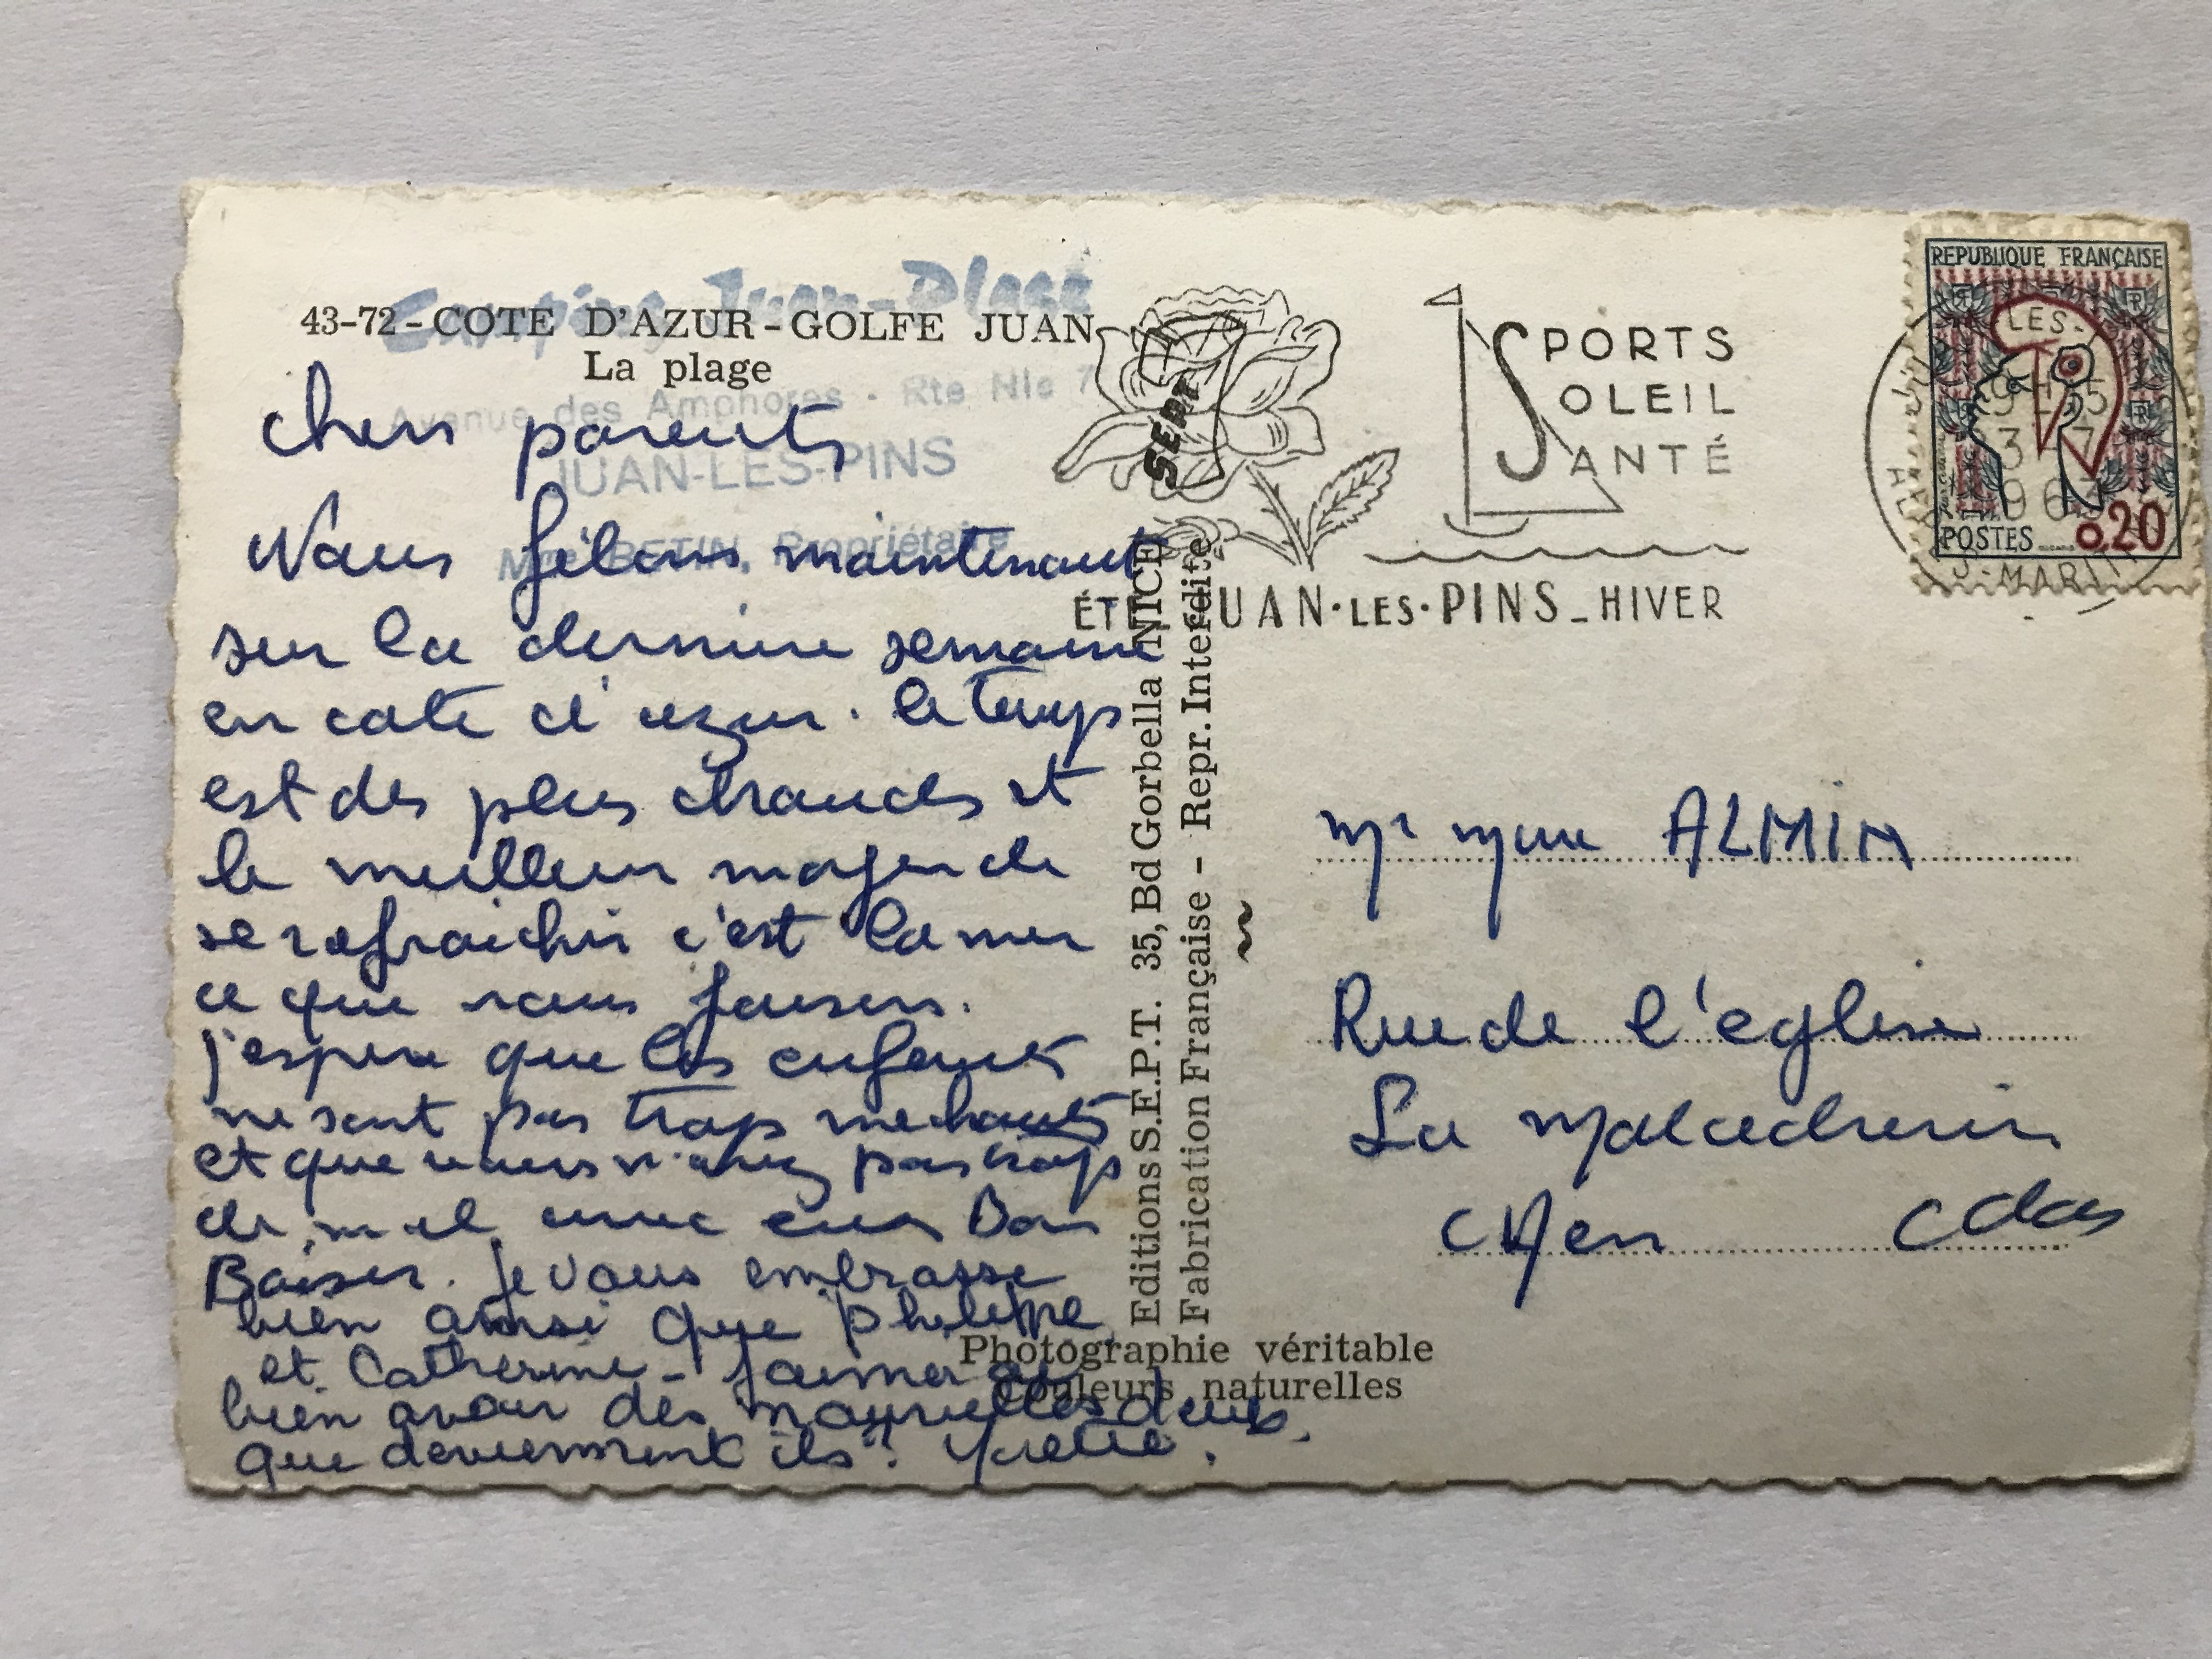 Camping Juan-Plage
43-72-COTE D'AZUR-GOLFE JUAN
La plage
Avenue des Amphores - Rte Nle 7
JUAN-LES-PINS
Propriétaire
chers parents
Nous filons maintenant
sur la derniere semaine
en cote d'azur. le temps
est des plus chauds et
le meilleur moyen de
se rafraichir c'est la mer
ce que nous faisons.
j'espere que les enfants
ne sont pas trop mechants
et que vous n'avez pas trop
de mal avec eux Bon
Baiser. je vous embrasse
bien ainsi que Philippe
et Catherine - J'aimerai
bien avoir des nouvelles d'eux.
que deviennent ils? Yvette.
Editions S.E.P.T. 35, Bd Gorbella NICE
Fabrication Française - Repr. Interdite
Photographie véritable
Couleurs naturelles
SEPT
SPORTS
SOLEIL
SANTÉ
ÉTÉ JUAN·LES·PINS_HIVER
REPUBLIQUE FRANÇAISE
POSTES 0,20
LES-
19H15
3-7
1963
A.-MARIT
Mr Mme ALMIN
Rue de l'eglise
La Maladrerie
CAen Cdos